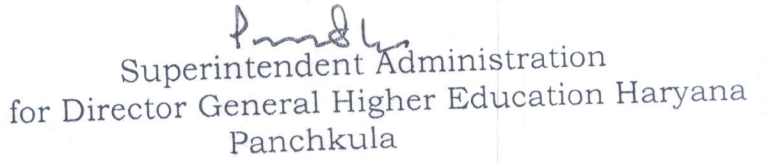 Superintendent Administration
for Director General Higher Education Haryana
Panchkula